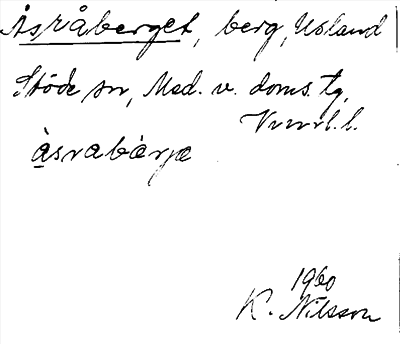 Åsråberget, berg, Usland
Stöde sn, Med. v. doms. tg,
Vnnrl. l.
àsrabàrjæ
1960
K. Nilsson